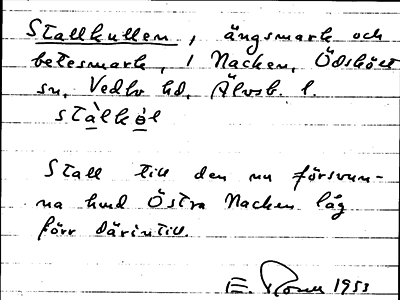 Stallkullen, ängsmark och
betesmark, i Nacken, Ödskölt
sn, Vedbo hd, Älvsb. l.
stàlkəl
Stall till den nu försvun-
na lund Östra Nacken låg
förr därintill.
E. 1953